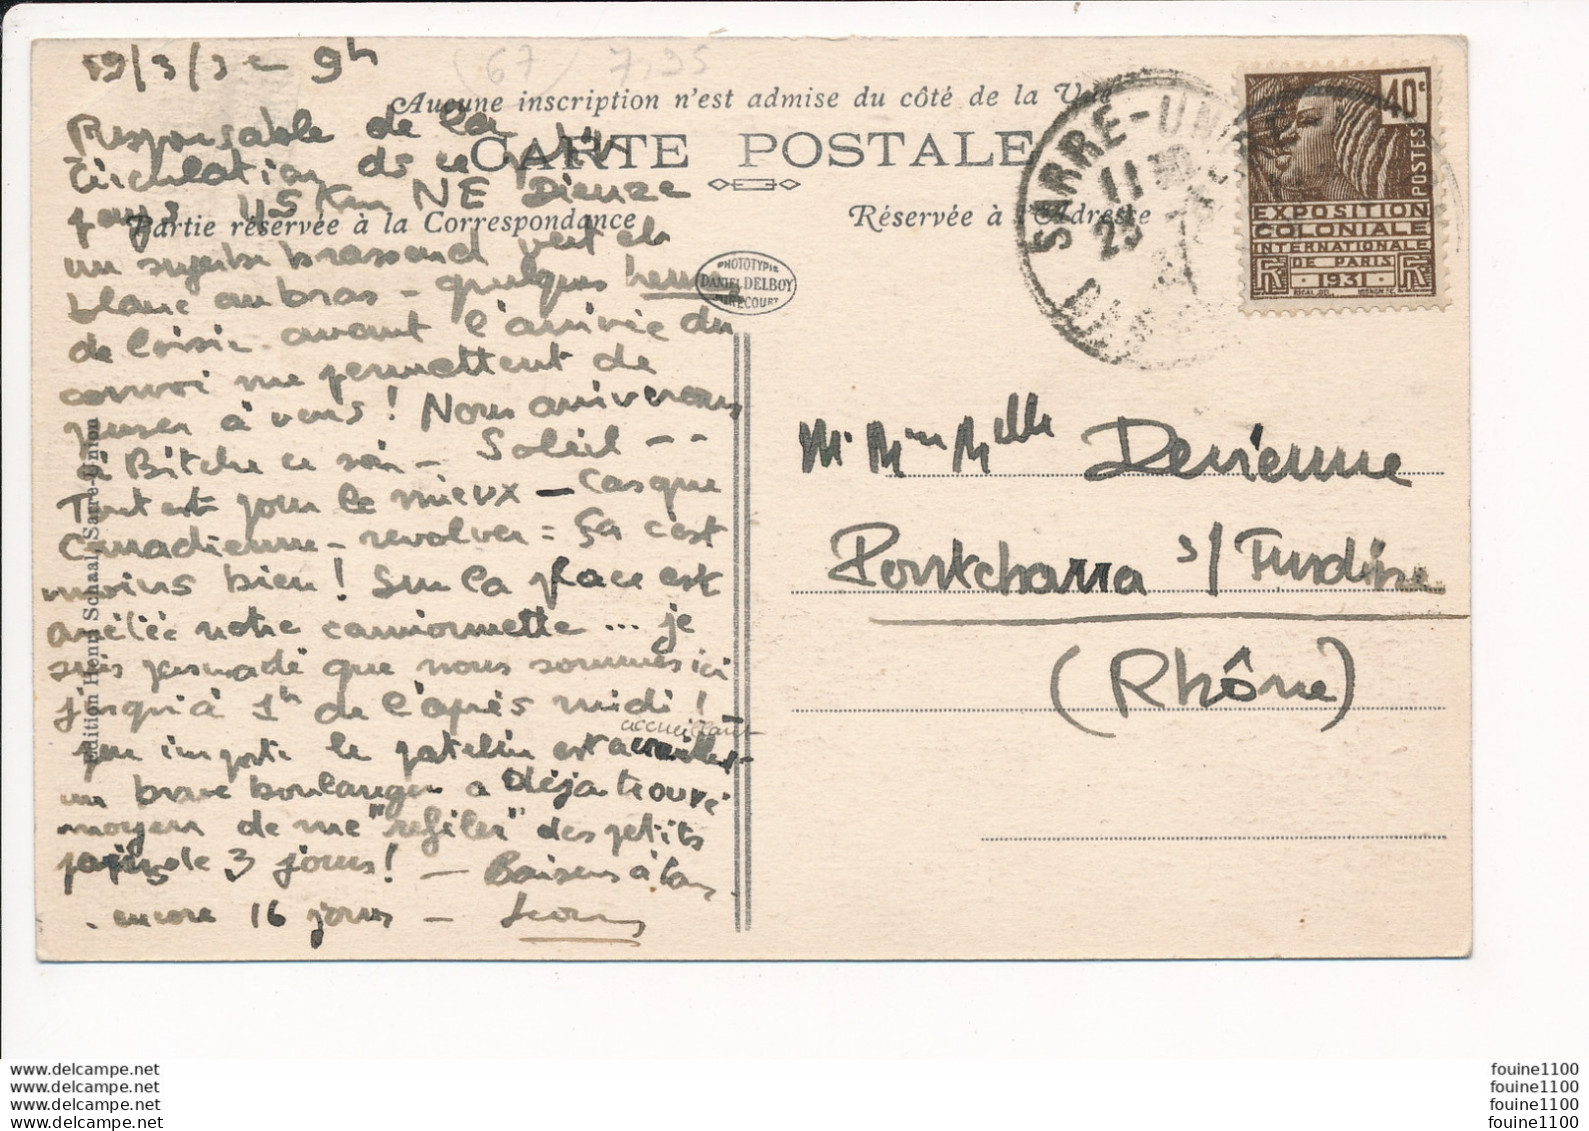 /3/3 9h
(67) 7,95
Aucune inscription n'est admise du côté de la Vue
CARTE POSTALE
Partie réservée à la Correspondance
Réservée à l'Adresse
Responsable de la
circulation ds ce petit
pays 45 Km NE Dieuze
un superbe brassard vert et
blanc au bras - quelques heures
de loisir avant l'arrivée du
convoi me permettent de
penser à vous ! Nous arriverons
à Bitche ce soir - Soleil - -
Tout est pour le mieux - Casque
Canadienne - revolver = Ça c'est
moins bien ! Sur la place est
arrêtée notre camionnette ... je
suis persuadé que nous sommes ici
jusqu'à 1h de l'après midi !
peu importe le patelin est accueillant
un brave boulanger a déjà trouvé
moyen de me "refiler" des petits
pains de 3 jours ! - Baisers à tous
encore 16 jours -
PHOTOTYPIE
DANIEL DELBOY
MIRECOURT
Edition Henri Schaal, Sarre-Union
SARRE-UNION
11
40c
POSTES
EXPOSITION
COLONIALE
INTERNATIONALE
DE PARIS
RF 1931 RF
Mr Mme Melle Devienne
Pontcharra s/ Turdine
(Rhône)
www.delcampe.net
www.delcampe.net
www.delcampe.net
www.delcampe.net
fouine1100
fouine1100
fouine1100
fouine1100